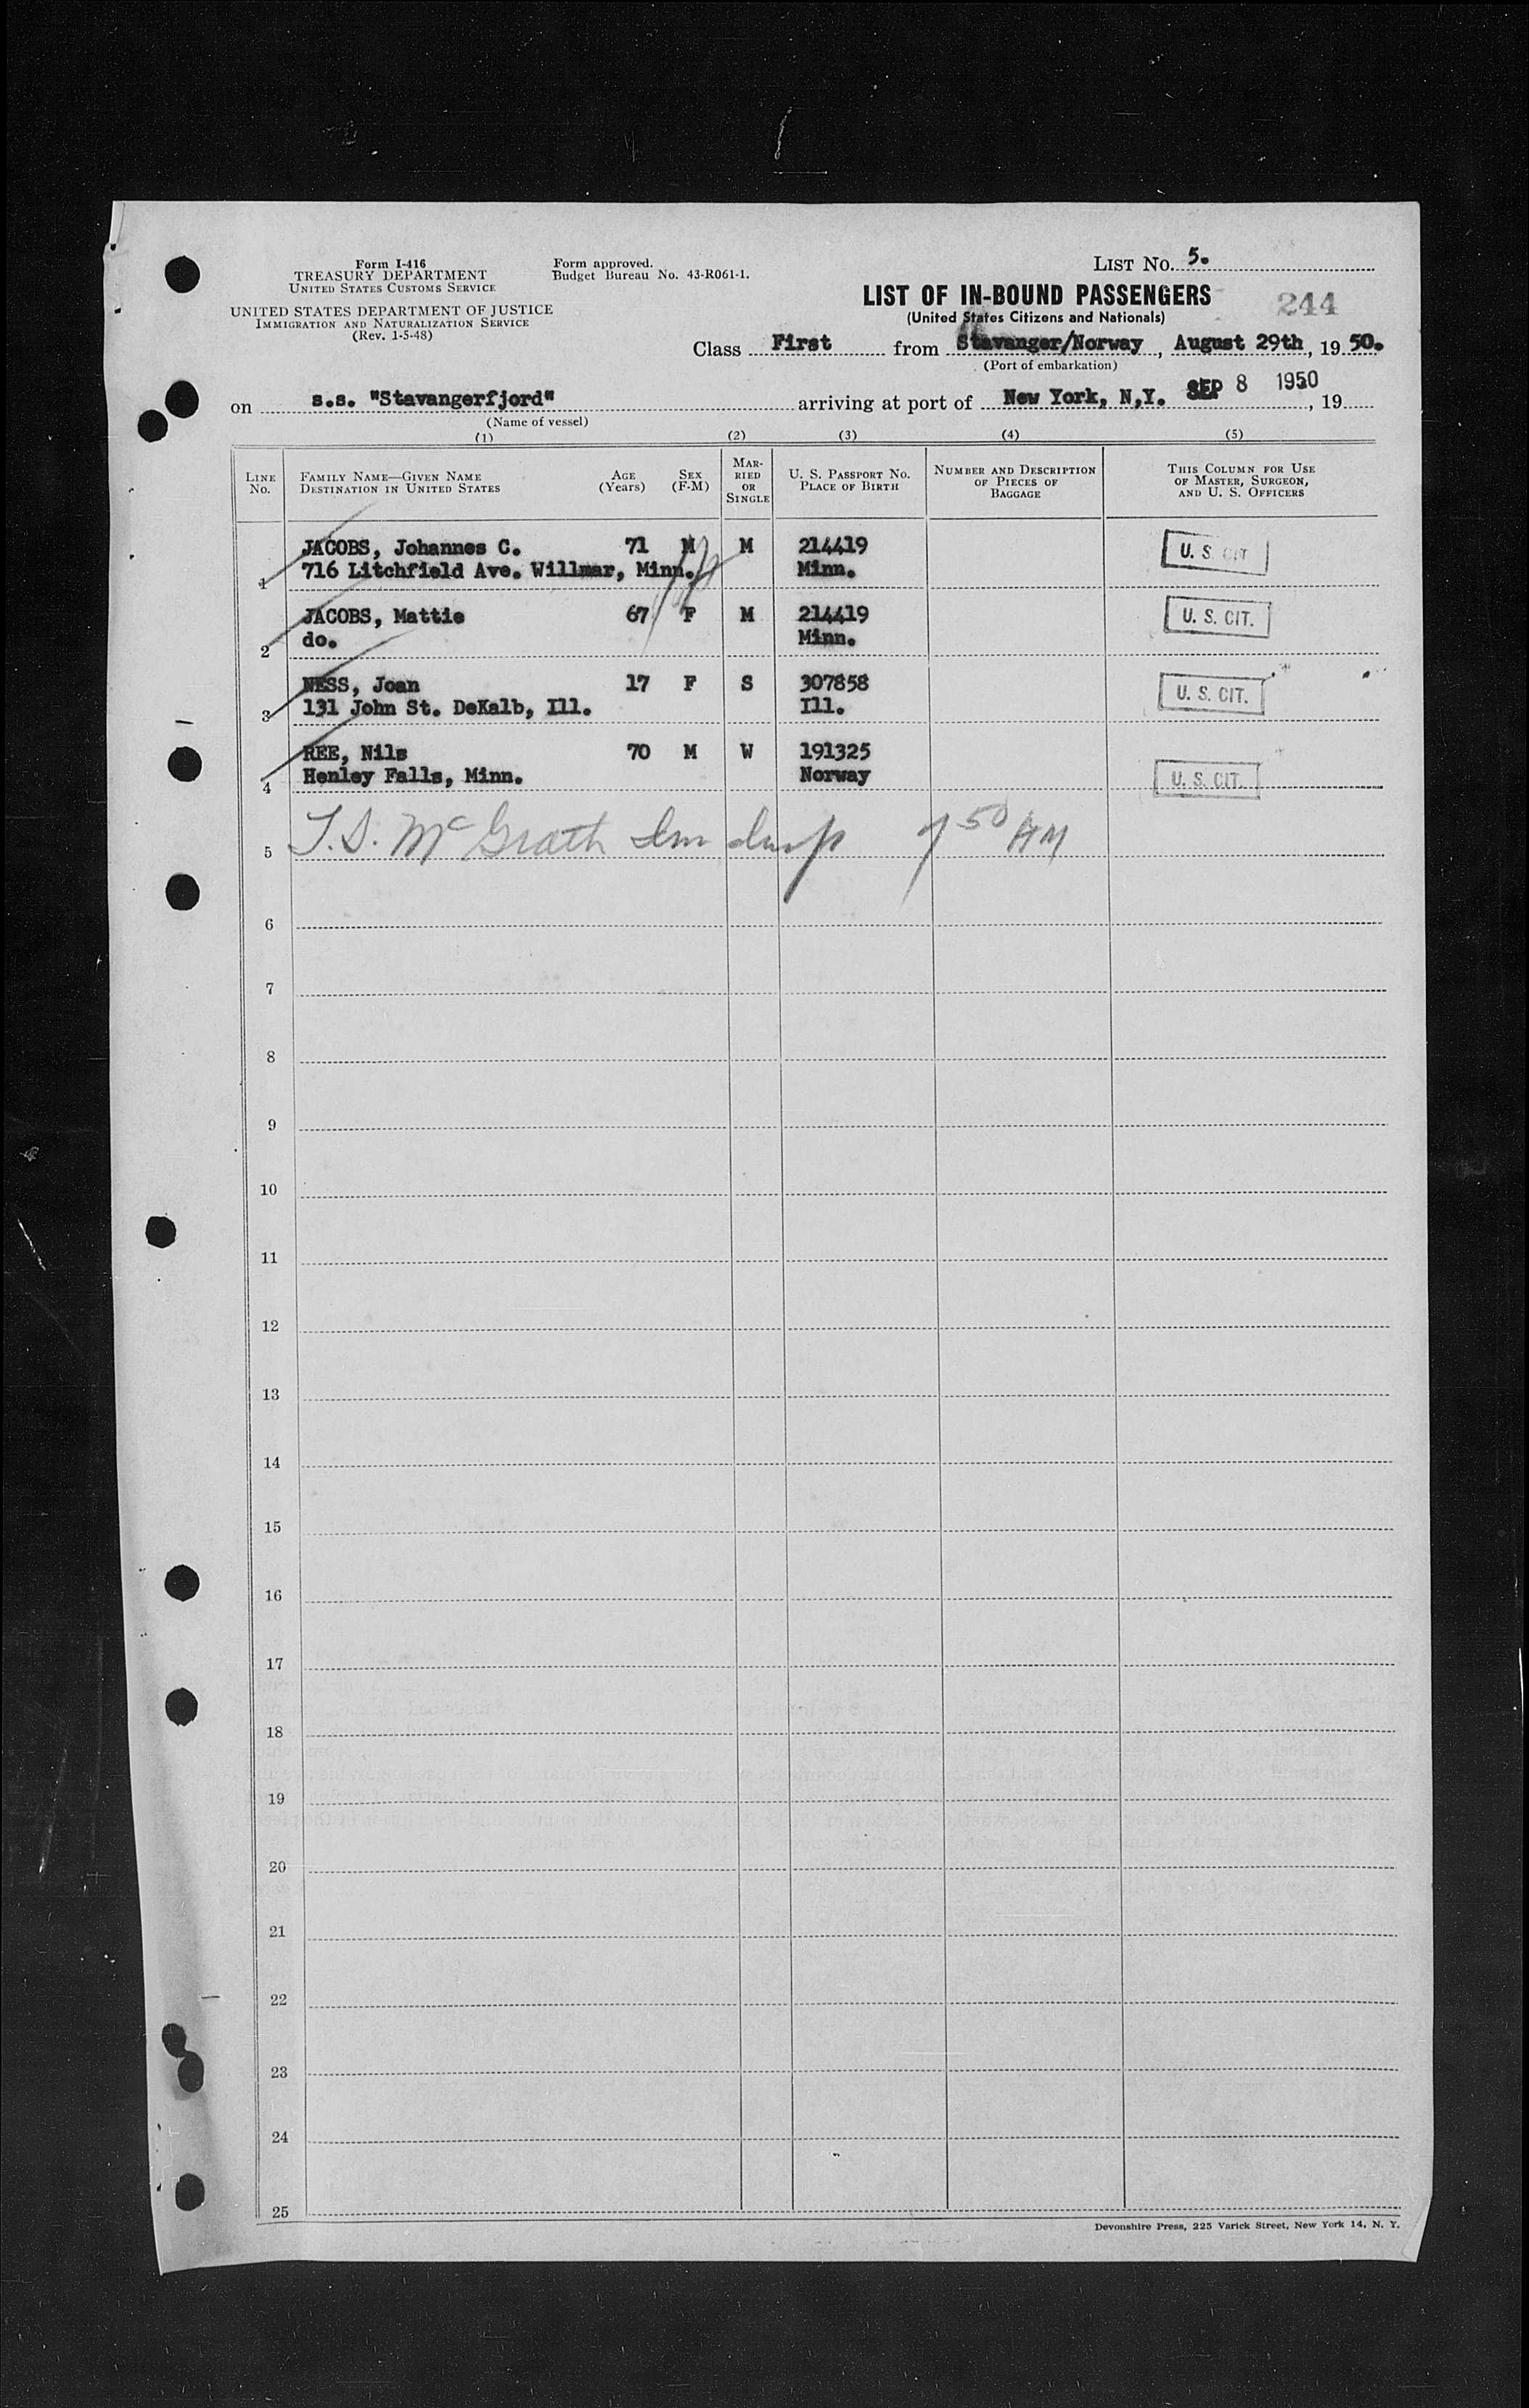 Form I-416
TREASURY DEPARTMENT
UNITED STATES CUSTOMS SERVICE
UNITED STATES DEPARTMENT OF JUSTICE
IMMIGRATION AND NATURALIZATION SERVICE
(Rev. 1-5-48)
Form approved.
Budget Bureau No. 43-R061-1.
LIST No. 5.
LIST OF IN-BOUND PASSENGERS
(United States Citizens and Nationals)
244
Class First from Stavanger/Norway, August 29th, 1950.
(Port of embarkation)
on s.s. "Stavangerfjord" arriving at port of New York, N,Y. SEP 8 1950, 19
(Name of vessel)
(1) (2) (3) (4) (5)
LINE No. FAMILY NAME—GIVEN NAME DESTINATION IN UNITED STATES AGE (Years) SEX (F-M) MARRIED OR SINGLE U. S. PASSPORT NO. PLACE OF BIRTH NUMBER AND DESCRIPTION OF PIECES OF BAGGAGE THIS COLUMN FOR USE OF MASTER, SURGEON, AND U. S. OFFICERS
JACOBS, Johannes C. 71 M M 214419 U. S. CIT
1 716 Litchfield Ave. Willmar, Minn. Minn.
JACOBS, Mattie 67 F M 214419 U. S. CIT.
2 do. Minn.
NESS, Joan 17 F S 307858 U. S. CIT.
3 131 John St. DeKalb, Ill. Ill.
REE, Nils 70 M W 191325
4 Henley Falls, Minn. Norway U. S. CIT.
5 T. S. McGrath Im Insp 7 50 AM
6
7
8
9
10
11
12
13
14
15
16
17
18
19
20
21
22
23
24
25
Devonshire Press, 225 Varick Street, New York 14, N. Y.